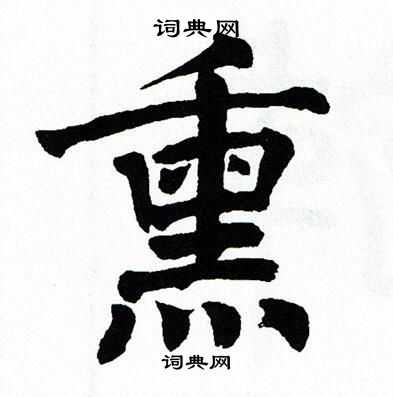 词典网
熏
词典网